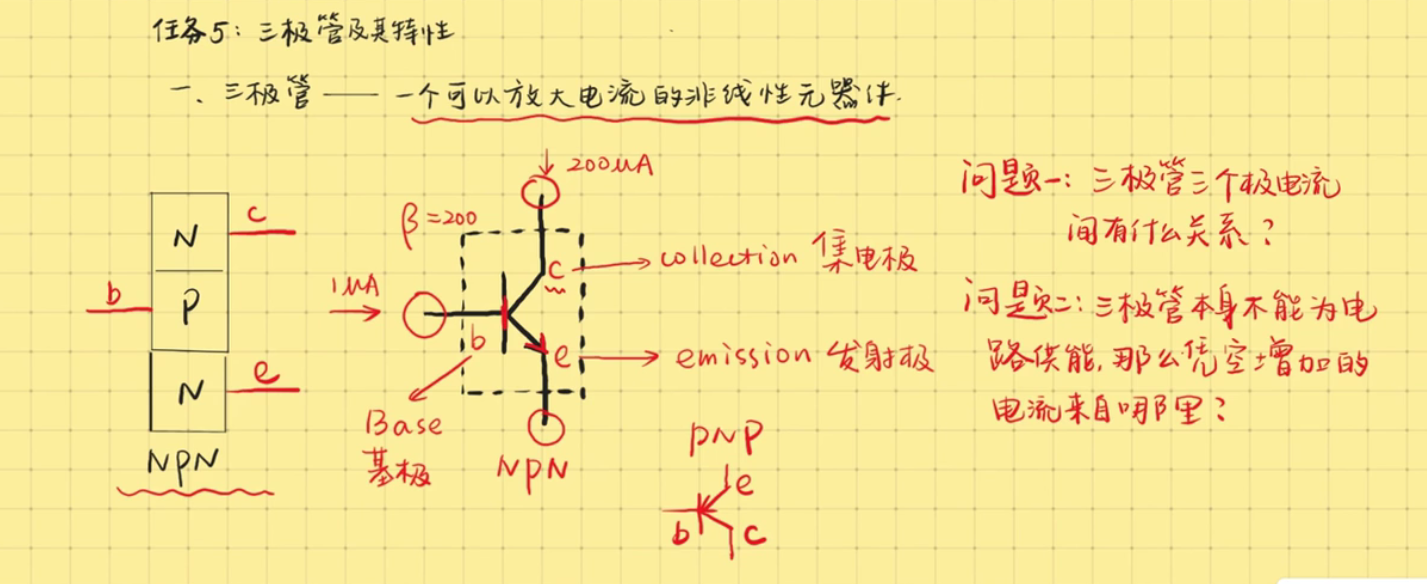 任务5：三极管及其特性
一、三极管 —— 一个可以放大电流的非线性元器件.
N
c
b
P
N
e
NPN
β=200
200μA
1μA
c
collection 集电极
b
e
emission 发射极
Base
基极
NPN
PNP
e
b
c
问题一：三极管三个极电流
间有什么关系？
问题二：三极管本身不能为电
路供能,那么凭空增加的
电流来自哪里？